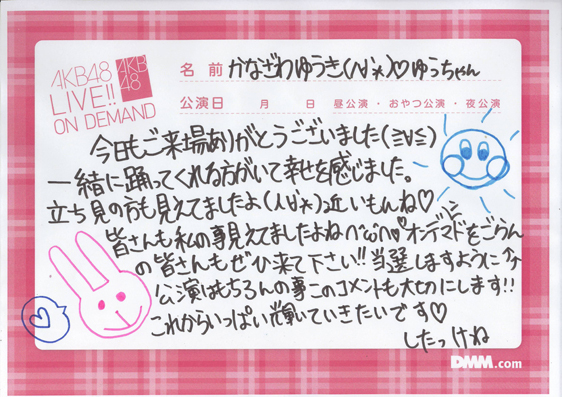 AKB48
LIVE!!
ON DEMAND
AKB
48
名 前 かなざわゆうき(人´∀`*)♡ゆうちゃん
公演日 月 日 昼公演・おやつ公演・夜公演
今日もご来場ありがとうございました(≧∀≦)
一緒に踊ってくれる方がいて幸せを感じました。
立ち見の方も見えてましたよ(人´∀`*)近いもんね♡
皆さんも私の事見えてましたよね(^ω^)♡オンデマンドをごらん
の皆さんもぜひ来て下さい!!当選しますように↑↑
公演はもちろんの事このコメントも大切にします!!
これからいっぱい輝いていきたいです♡
したっけね
DMM.com